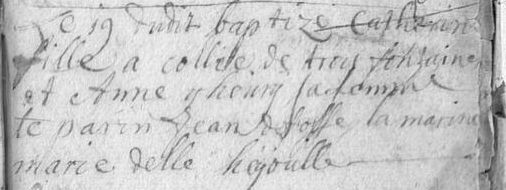 Le 19 dudit baptize Catherin
fille a collile de trois fontaine
et Anne ghenry sa femme
le parin Jean defosse la marine
marie delle heyoulle